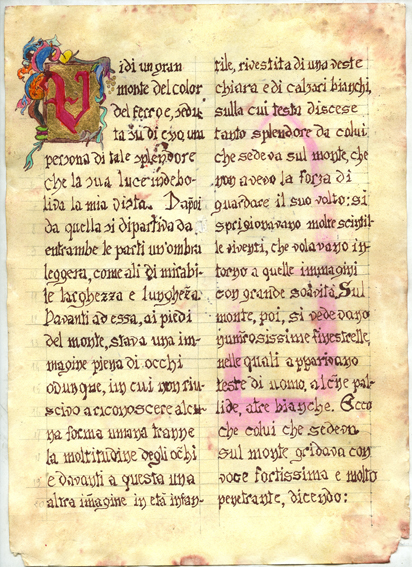 Vidi un gran
monte del color
del ferro e, sedu-
ta su di esso una
persona di tale splendore
che la sua luce indebo-
liva la mia vista. Da poi
da quella si dipartiva da
entrambe le parti un'ombra
leggera, come ali di mirabi-
le larghezza e lunghezza.
Davanti ad essa, ai piedi
del monte, stava una im-
magine piena di occhi
ovunque, in cui non riu-
scivo a riconoscere alcu-
na forma umana tranne
la moltitudine degli occhi
e davanti a questa una
altra imagine in età infan-
tile, rivestita di una veste
chiara e di calzari bianchi,
sulla cui testa discese
tanto splendore da colui
che sedeva sul monte, che
non avevo la forza di
guardare il suo volto; si
sprigionavano molte scintil-
le viventi, che volavano in-
torno a quelle immagini
con grande soavità. Sul
monte, poi, si vedevano
numerosissime finestrelle,
nelle quali apparivano
teste di uomo, alcne pal-
lide, atre bianche. Ecco
che colui che sedeva
sul monte gridava con
voce fortissima e molto
penetrante, dicendo: